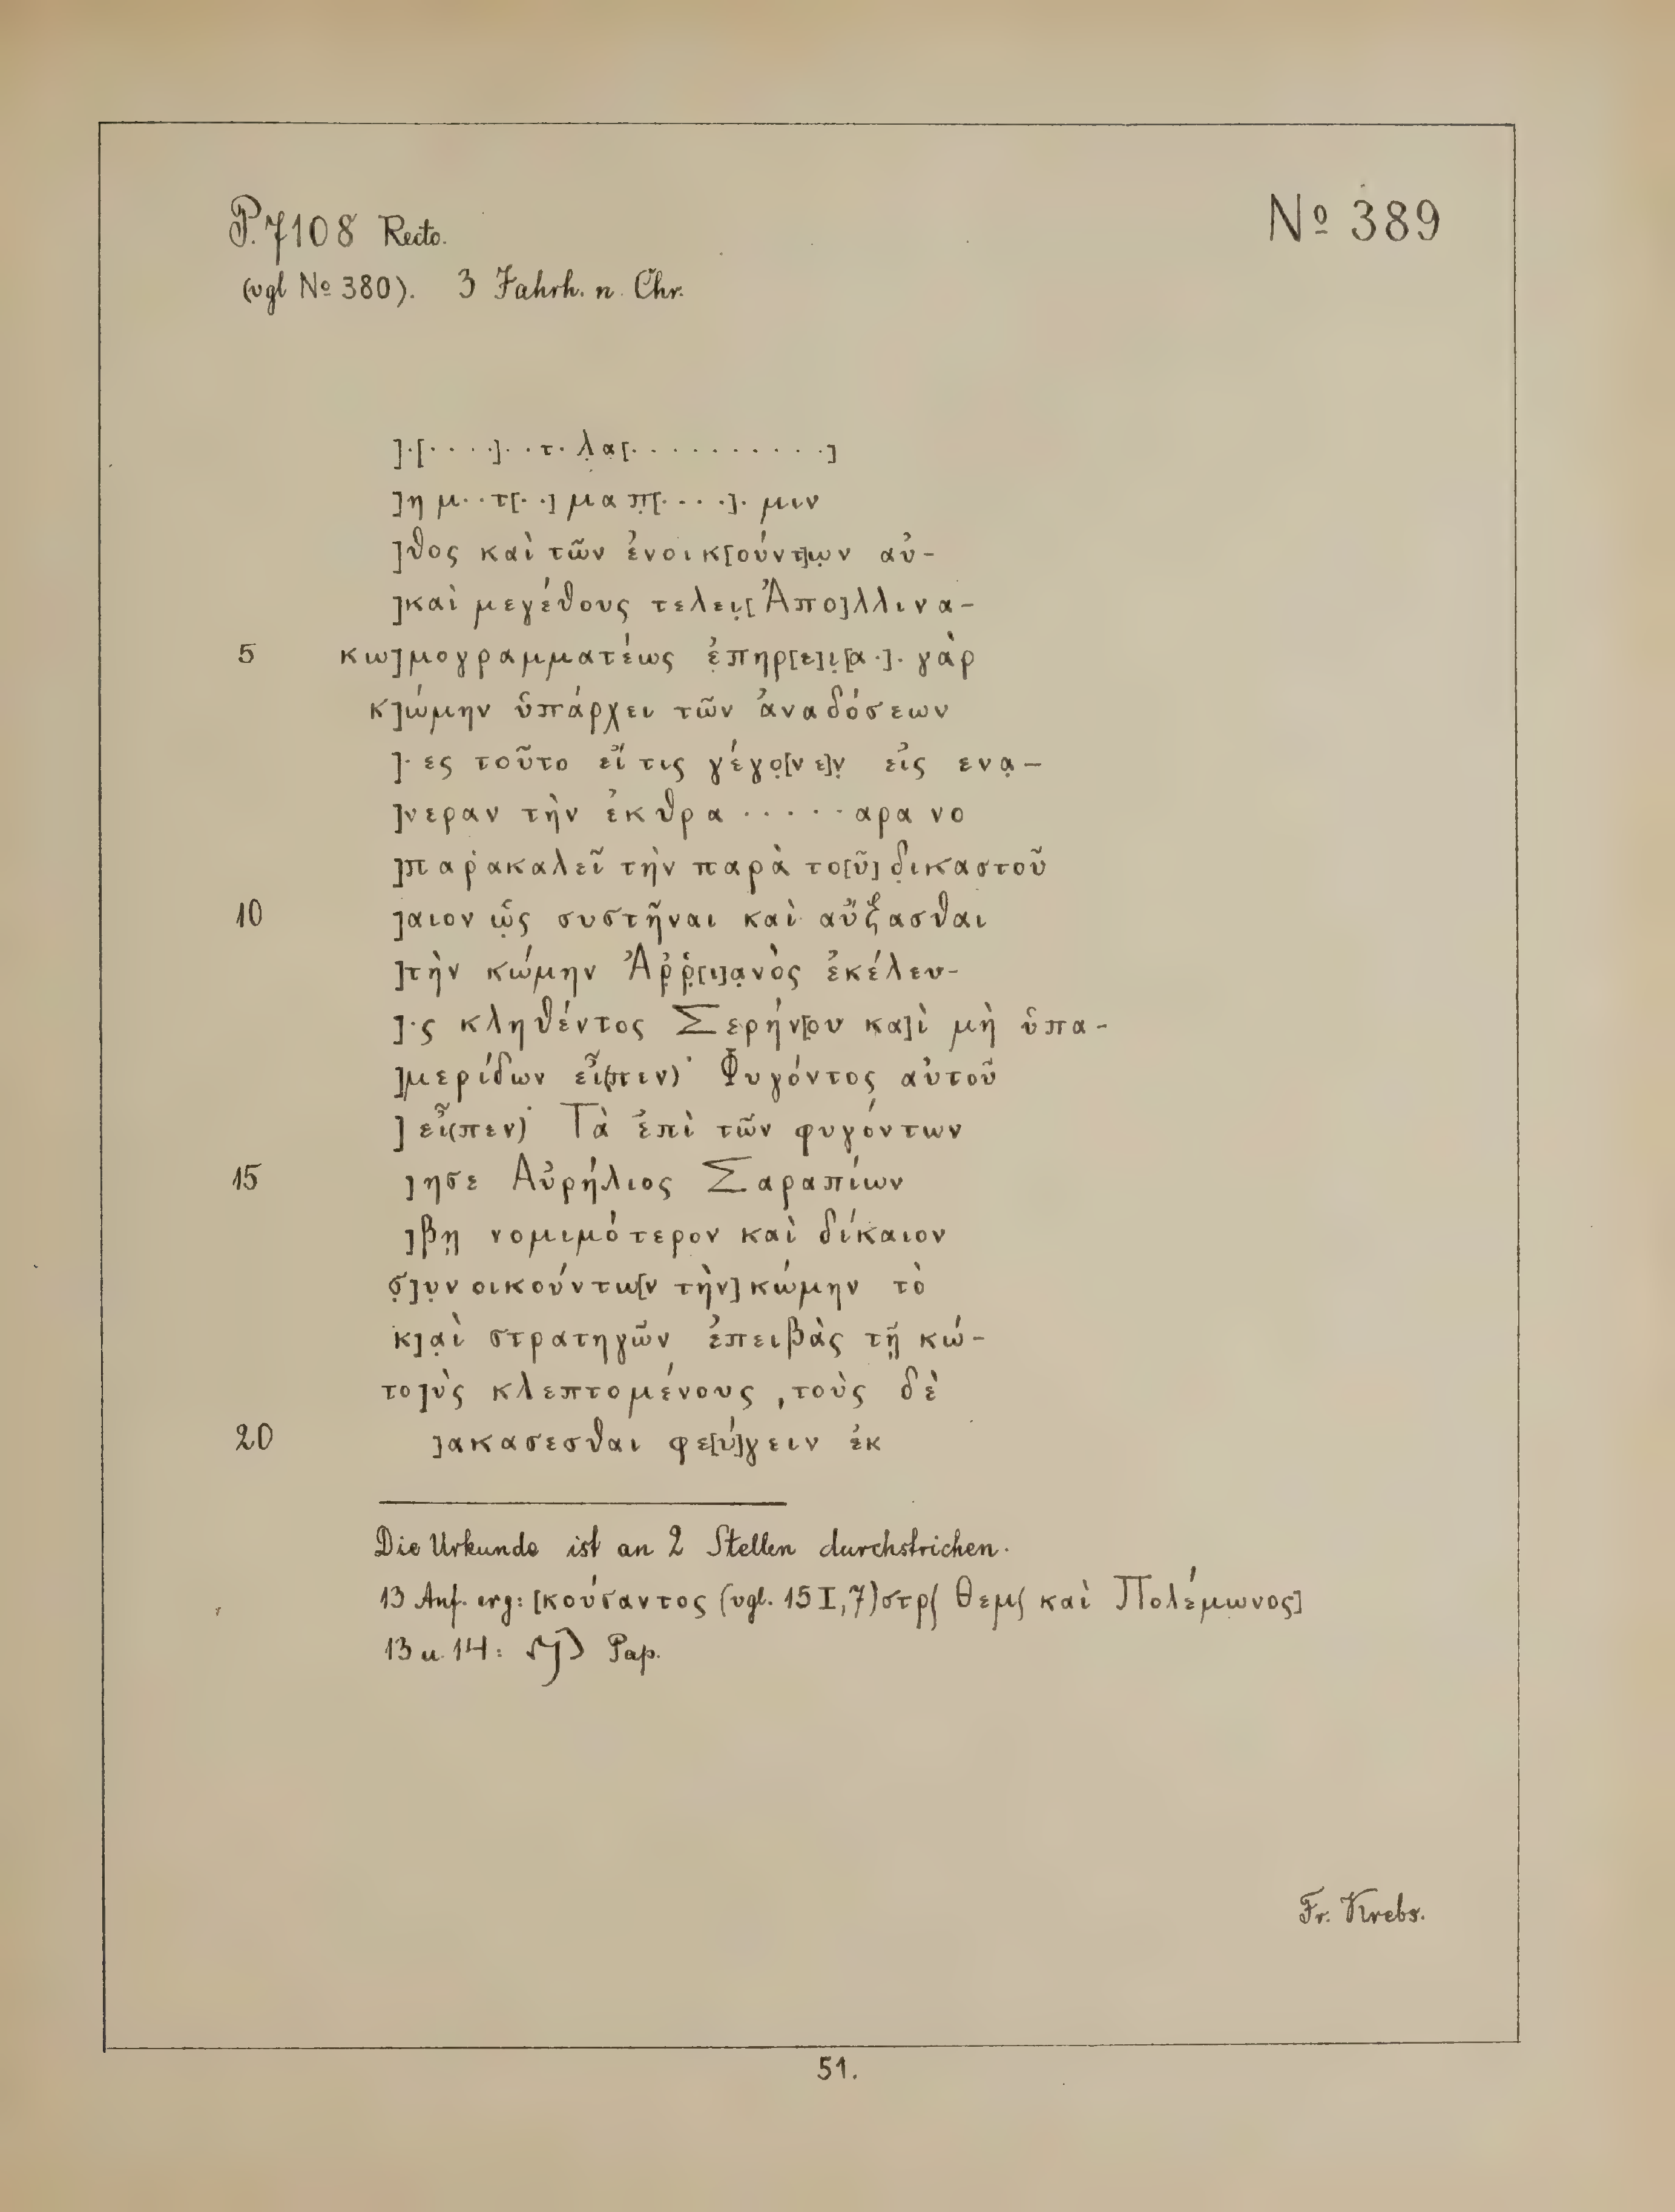 P. 7108 Recto.
№ 389
(vgl № 380). 3 Jahrh. n. Chr.
]·[····]··τ·λ̣α[··········]
]η μ··τ[··] μα π̣[····]· μιν
]θος καὶ τῶν ἐνοικ[ούντ]ω̣ν αὐ-
]καὶ μεγέθους τελει̣[ Ἀπο]λλινα-
5 κω]μογραμματέως ἐ̣πηρ[ε]ι̣[α·]· γὰρ
κ]ώμην ὑπάρχει τῶν ἀναδόσεων
]· ες τοῦτο εἴ τις γέγο̣[νε]ν̣ εἰς ενα̣-
]νεραν τὴν ἐκθρα ····· αρα νο
]παρακαλεῖ τὴν παρὰ το[ῦ] δ̣ικαστοῦ
10 ]αιον ὥ̣ς συστῆναι καὶ αὔξασθαι
]τὴν κώμην Ἀρ̣ῥ̣[ι]α̣νὸς ἐκέλευ-
]·ς κληθέντος Σερήν[ου κα]ὶ μὴ ὑπα-
]μερίδων εἶ(πεν)˙ Φυγόντος αὐτοῦ
] εἶ(πεν)˙ Τὰ ἐπὶ τῶν φυγόντων
15 ]ησε Αὐρήλιος Σαραπίων
]βῃ νομιμότερον καὶ δίκαιον
σ̣]υ̣νοικούντω[ν τὴν] κώμην τὸ
κ]α̣ὶ στρατηγῶν ἐπειβὰς τῇ κώ-
το]ὺς κλεπτομένους, τοὺς δὲ
20 ]ακασεσθαι φε[ύ]γειν ἐκ
Die Urkunde ist an 2 Stellen durchstrichen.
13 Anf. erg: [κούσαντος (vgl. 15 I, 7) στρ( Θεμ( καὶ Πολέμωνος]
13 u. 14: Pap.
Fr. Krebs.
51.